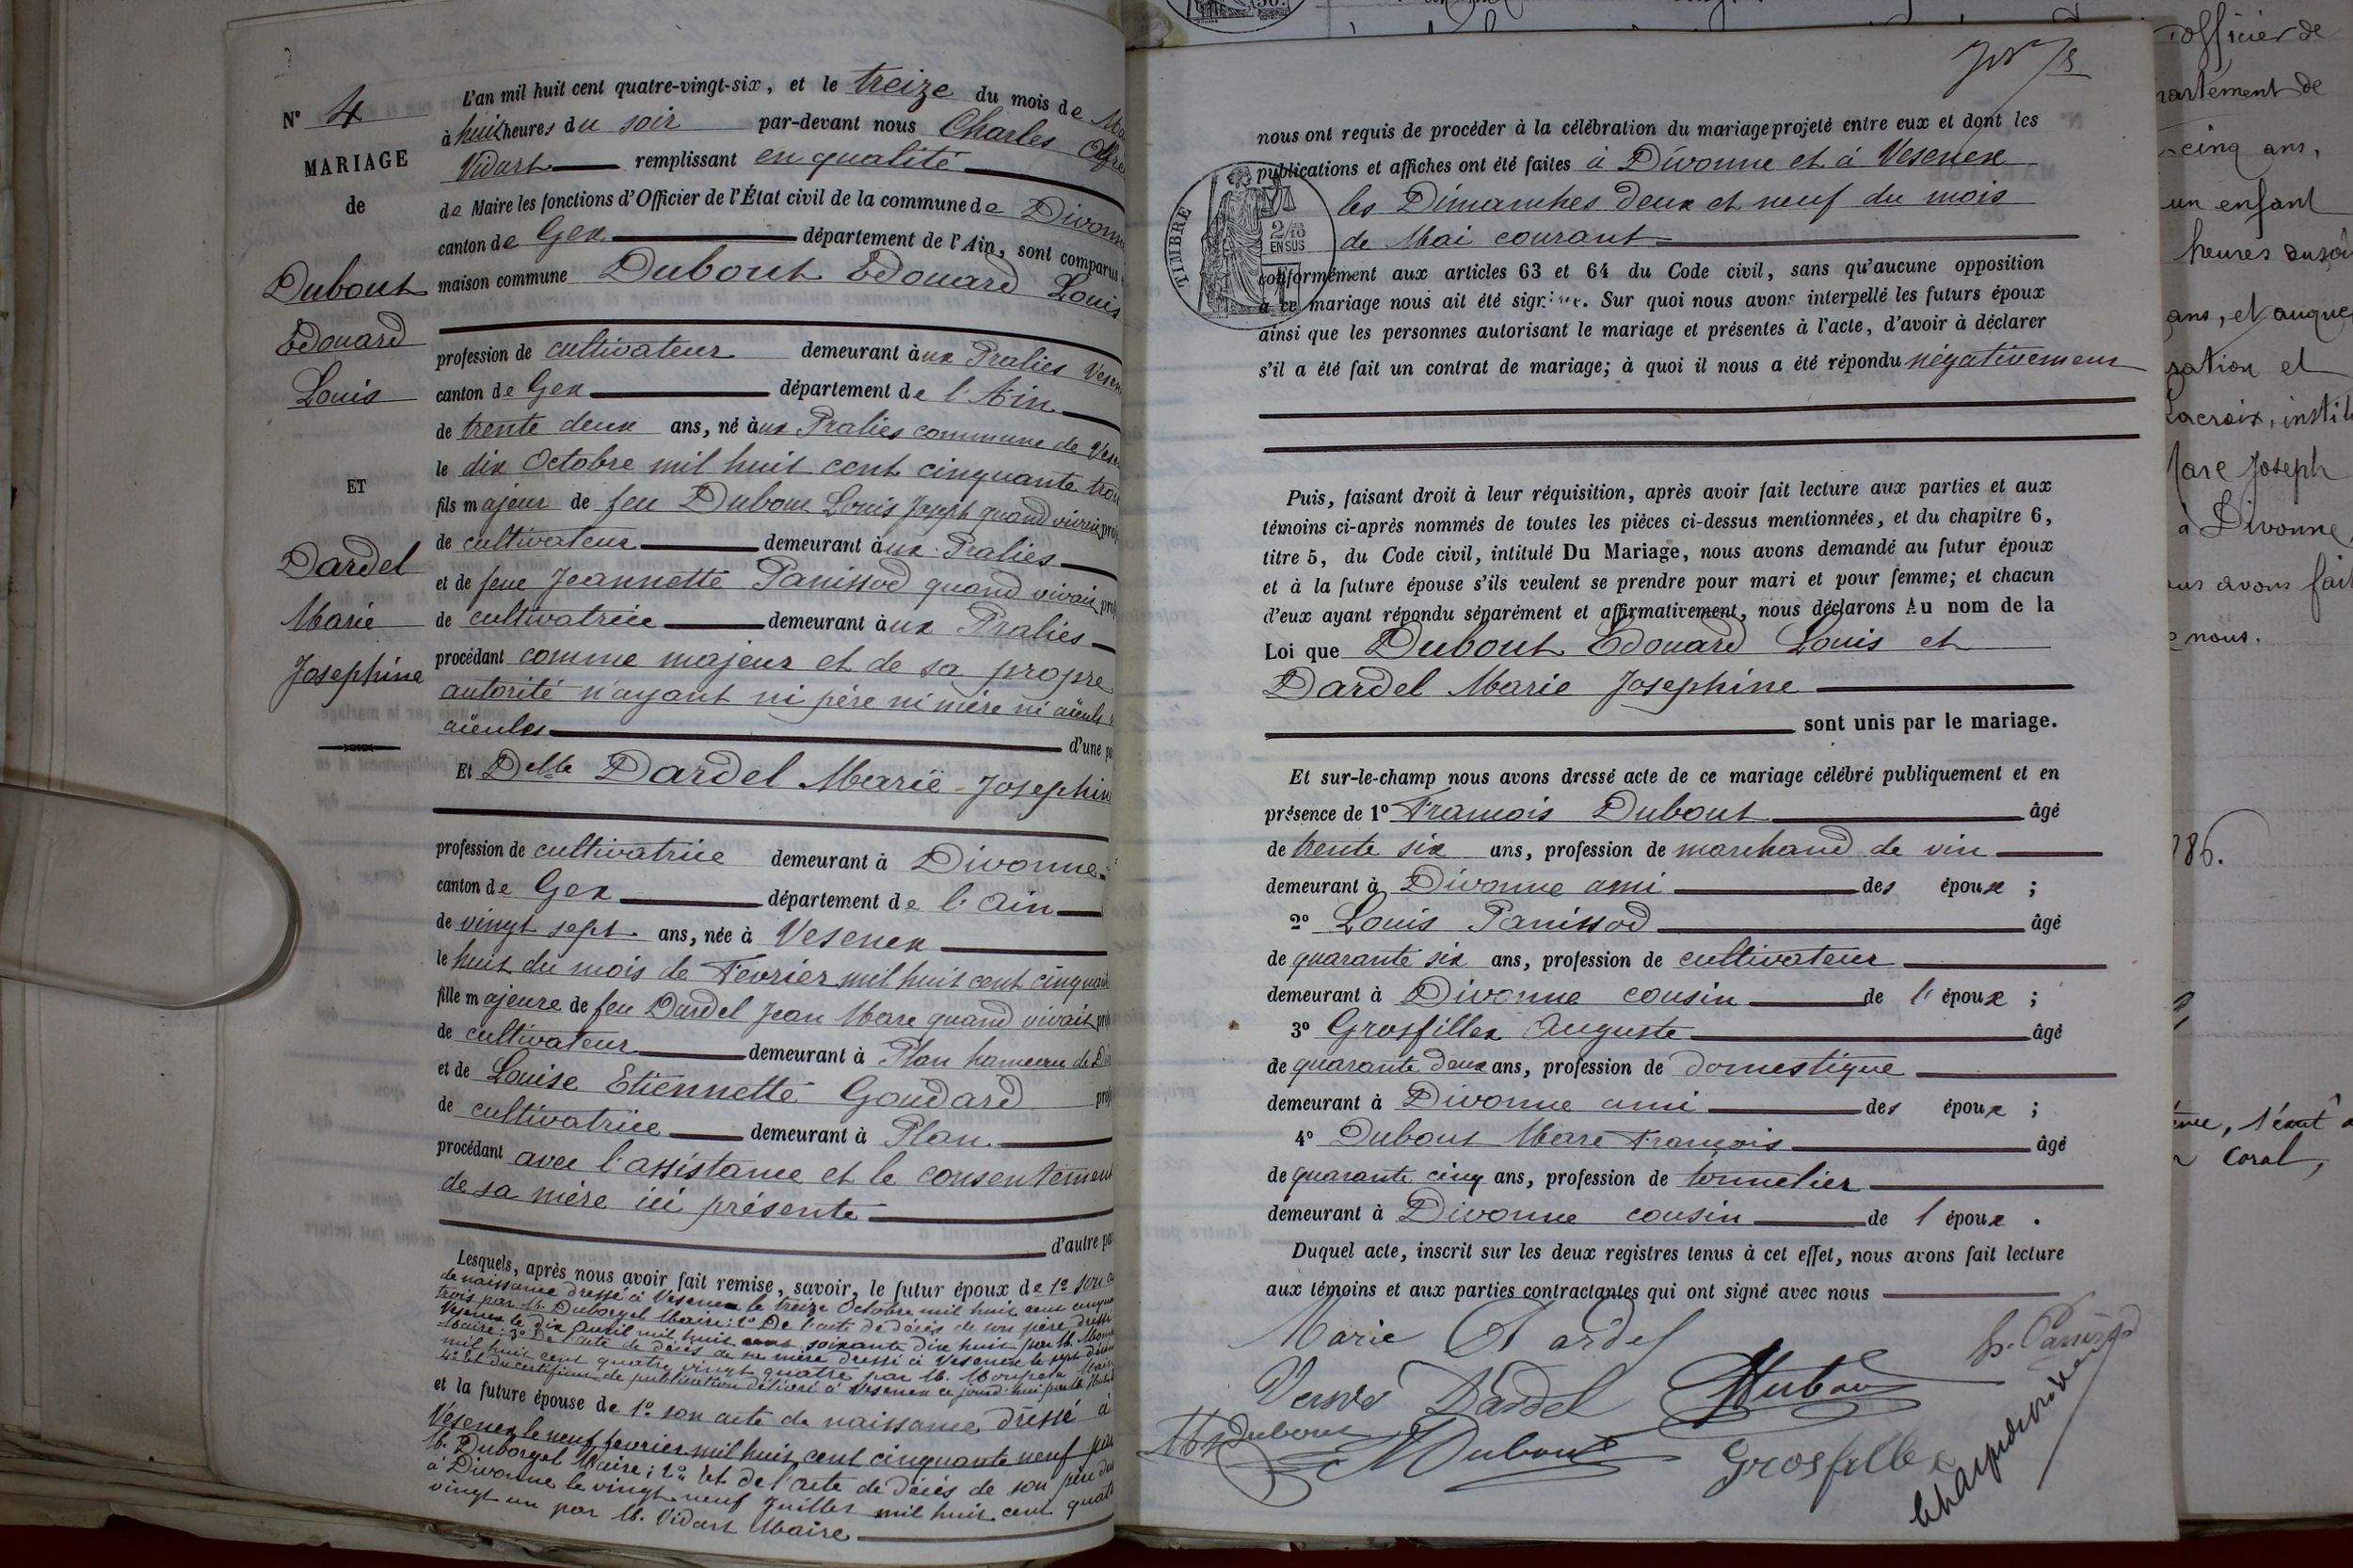 N° 4
MARIAGE
de
Dubout
Edouard
Louis
ET
Dardel
Marie
Josephine
L'an mil huit cent quatre-vingt-six, et le treize du mois de
à huit heures du soir par-devant nous Charles
Vidart remplissant en qualité
de Maire les fonctions d'Officier de l'État civil de la commune de Divonne
canton de Gex département de l'Ain, sont comparus
maison commune Dubout Edouard Louis
profession de cultivateur demeurant à ux Pralies
canton de Gex département de l'Ain
de trente deux ans, né à ux Pralies commune de
le dix Octobre mil huit cent cinquante trois
fils majeur de feu Dubout Louis Joseph quand vivait
de cultivateur demeurant à ux Pralies
et de feue Jeannette Panissod quand vivait
de cultivatrice demeurant à ux Pralies
procédant comme majeur et de sa propre
autorité n'ayant ni père ni mère ni aïeuls
aïeules d'une
Et Delle Dardel Marie Josephine
profession de cultivatrice demeurant à Divonne
canton de Gex département de l'Ain
de vingt sept ans, née à Vesenex
le huit du mois de Fevrier mil huit cent
fille majeure de feu Dardel Jean Marc quand vivait
de cultivateur demeurant à Plan hameau de
et de Louise Etiennette Goudard
de cultivatrice demeurant à Plan
procédant avec l'assistance et le consentement
de sa mère ici présente
d'autre
Lesquels, après nous avoir fait remise, savoir, le futur époux de 1° son
de naissance dressé à Vesenex le treize Octobre mil huit cent
trois par M. Duborgel Maire; 2° De l'acte de décès de son père dressé
Vesenex le dix Avril mil huit cent soixante dix huit par M.
Maire; 3° De l'acte de décès de sa mère dressé à Vesenex le sept
mil huit cent quatre vingt quatre par M.
4° Et du certificat de publication délivré à Vesenex ce jourd'hui par le
et la future épouse de 1° son acte de naissance dressé à
Vesenex le neuf fevrier mil huit cent cinquante neuf par
M. Duborgel Maire; 2° Et de l'acte de décès de son père
à Divonne le vingt neuf Juillet mil huit cent
vingt un par M. Vidart Maire
nous ont requis de procéder à la célébration du mariage projeté entre eux et dont les
publications et affiches ont été faites à Divonne et à Vesenex
les Dimanches deux et neuf du mois
de Mai courant
TIMBRE
2/10
EN SUS
conformément aux articles 63 et 64 du Code civil, sans qu'aucune opposition
à ce mariage nous ait été signifiée. Sur quoi nous avons interpellé les futurs époux
ainsi que les personnes autorisant le mariage et présentes à l'acte, d'avoir à déclarer
s'il a été fait un contrat de mariage; à quoi il nous a été répondu négativement
Puis, faisant droit à leur réquisition, après avoir fait lecture aux parties et aux
témoins ci-après nommés de toutes les pièces ci-dessus mentionnées, et du chapitre 6,
titre 5, du Code civil, intitulé Du Mariage, nous avons demandé au futur époux
et à la future épouse s'ils veulent se prendre pour mari et pour femme; et chacun
d'eux ayant répondu séparément et affirmativement, nous déclarons Au nom de la
Loi que Dubout Edouard Louis et
Dardel Marie Josephine
sont unis par le mariage.
Et sur-le-champ nous avons dressé acte de ce mariage célébré publiquement et en
présence de 1° François Dubout âgé
de trente six ans, profession de marchand de vin
demeurant à Divonne ami des époux ;
2° Louis Panissod âgé
de quarante six ans, profession de cultivateur
demeurant à Divonne cousin de l'époux ;
3° Grosfillex Auguste âgé
de quarante deux ans, profession de domestique
demeurant à Divonne ami des époux ;
4° Dubout Marc François âgé
de quarante cinq ans, profession de tonnelier
demeurant à Divonne cousin de l'époux .
Duquel acte, inscrit sur les deux registres tenus à cet effet, nous avons fait lecture
aux témoins et aux parties contractantes qui ont signé avec nous
Marie Dardel
Dardel
Dubout
Dubout
Dubout
Grosfillex
officier de
cinq ans,
un enfant
heures du soir
ans, et
Lacroix,
Joseph
à Divonne
avons fait
nous.